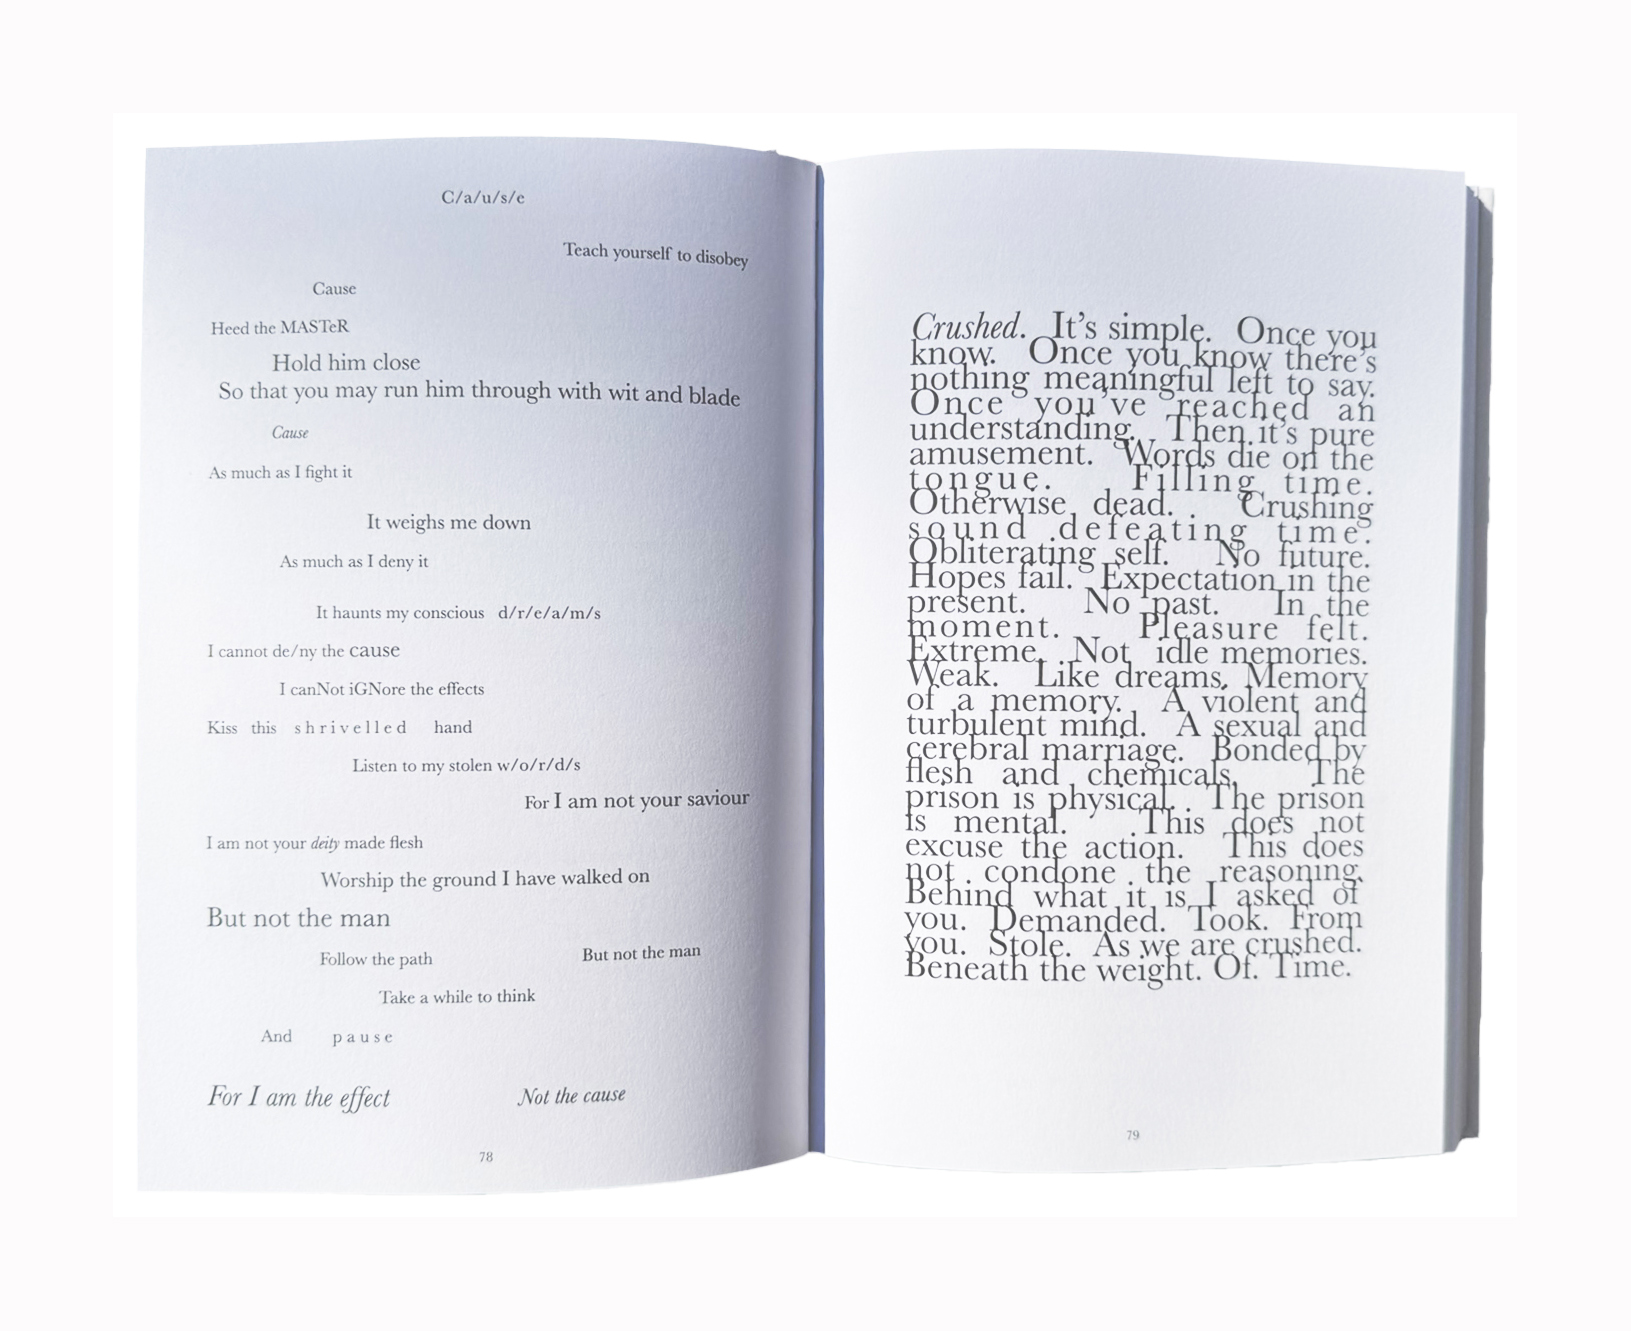 C/a/u/s/e
Teach yourself to disobey
Cause
Heed the MASTeR
Hold him close
So that you may run him through with wit and blade
Cause
As much as I fight it
It weighs me down
As much as I deny it
It haunts my conscious d/r/e/a/m/s
I cannot de/ny the cause
I canNot iGNore the effects
Kiss this s h r i v e l l e d hand
Listen to my stolen w/o/r/d/s
For I am not your saviour
I am not your deity made flesh
Worship the ground I have walked on
But not the man
Follow the path But not the man
Take a while to think
And p a u s e
For I am the effect Not the cause
78
Crushed. It's simple. Once you
know. Once you know there's
nothing meaningful left to say.
Once you've reached an
understanding. Then it's pure
amusement. Words die on the
tongue. Filling time.
Otherwise dead. Crushing
sound defeating time.
Obliterating self. No future.
Hopes fail. Expectation in the
present. No past. In the
moment. Pleasure felt.
Extreme. Not idle memories.
Weak. Like dreams. Memory
of a memory. A violent and
turbulent mind. A sexual and
cerebral marriage. Bonded by
flesh and chemicals. The
prison is physical. The prison
is mental. This does not
excuse the action. This does
not condone the reasoning.
Behind what it is I asked of
you. Demanded. Took. From
you. Stole. As we are crushed.
Beneath the weight. Of. Time.
79